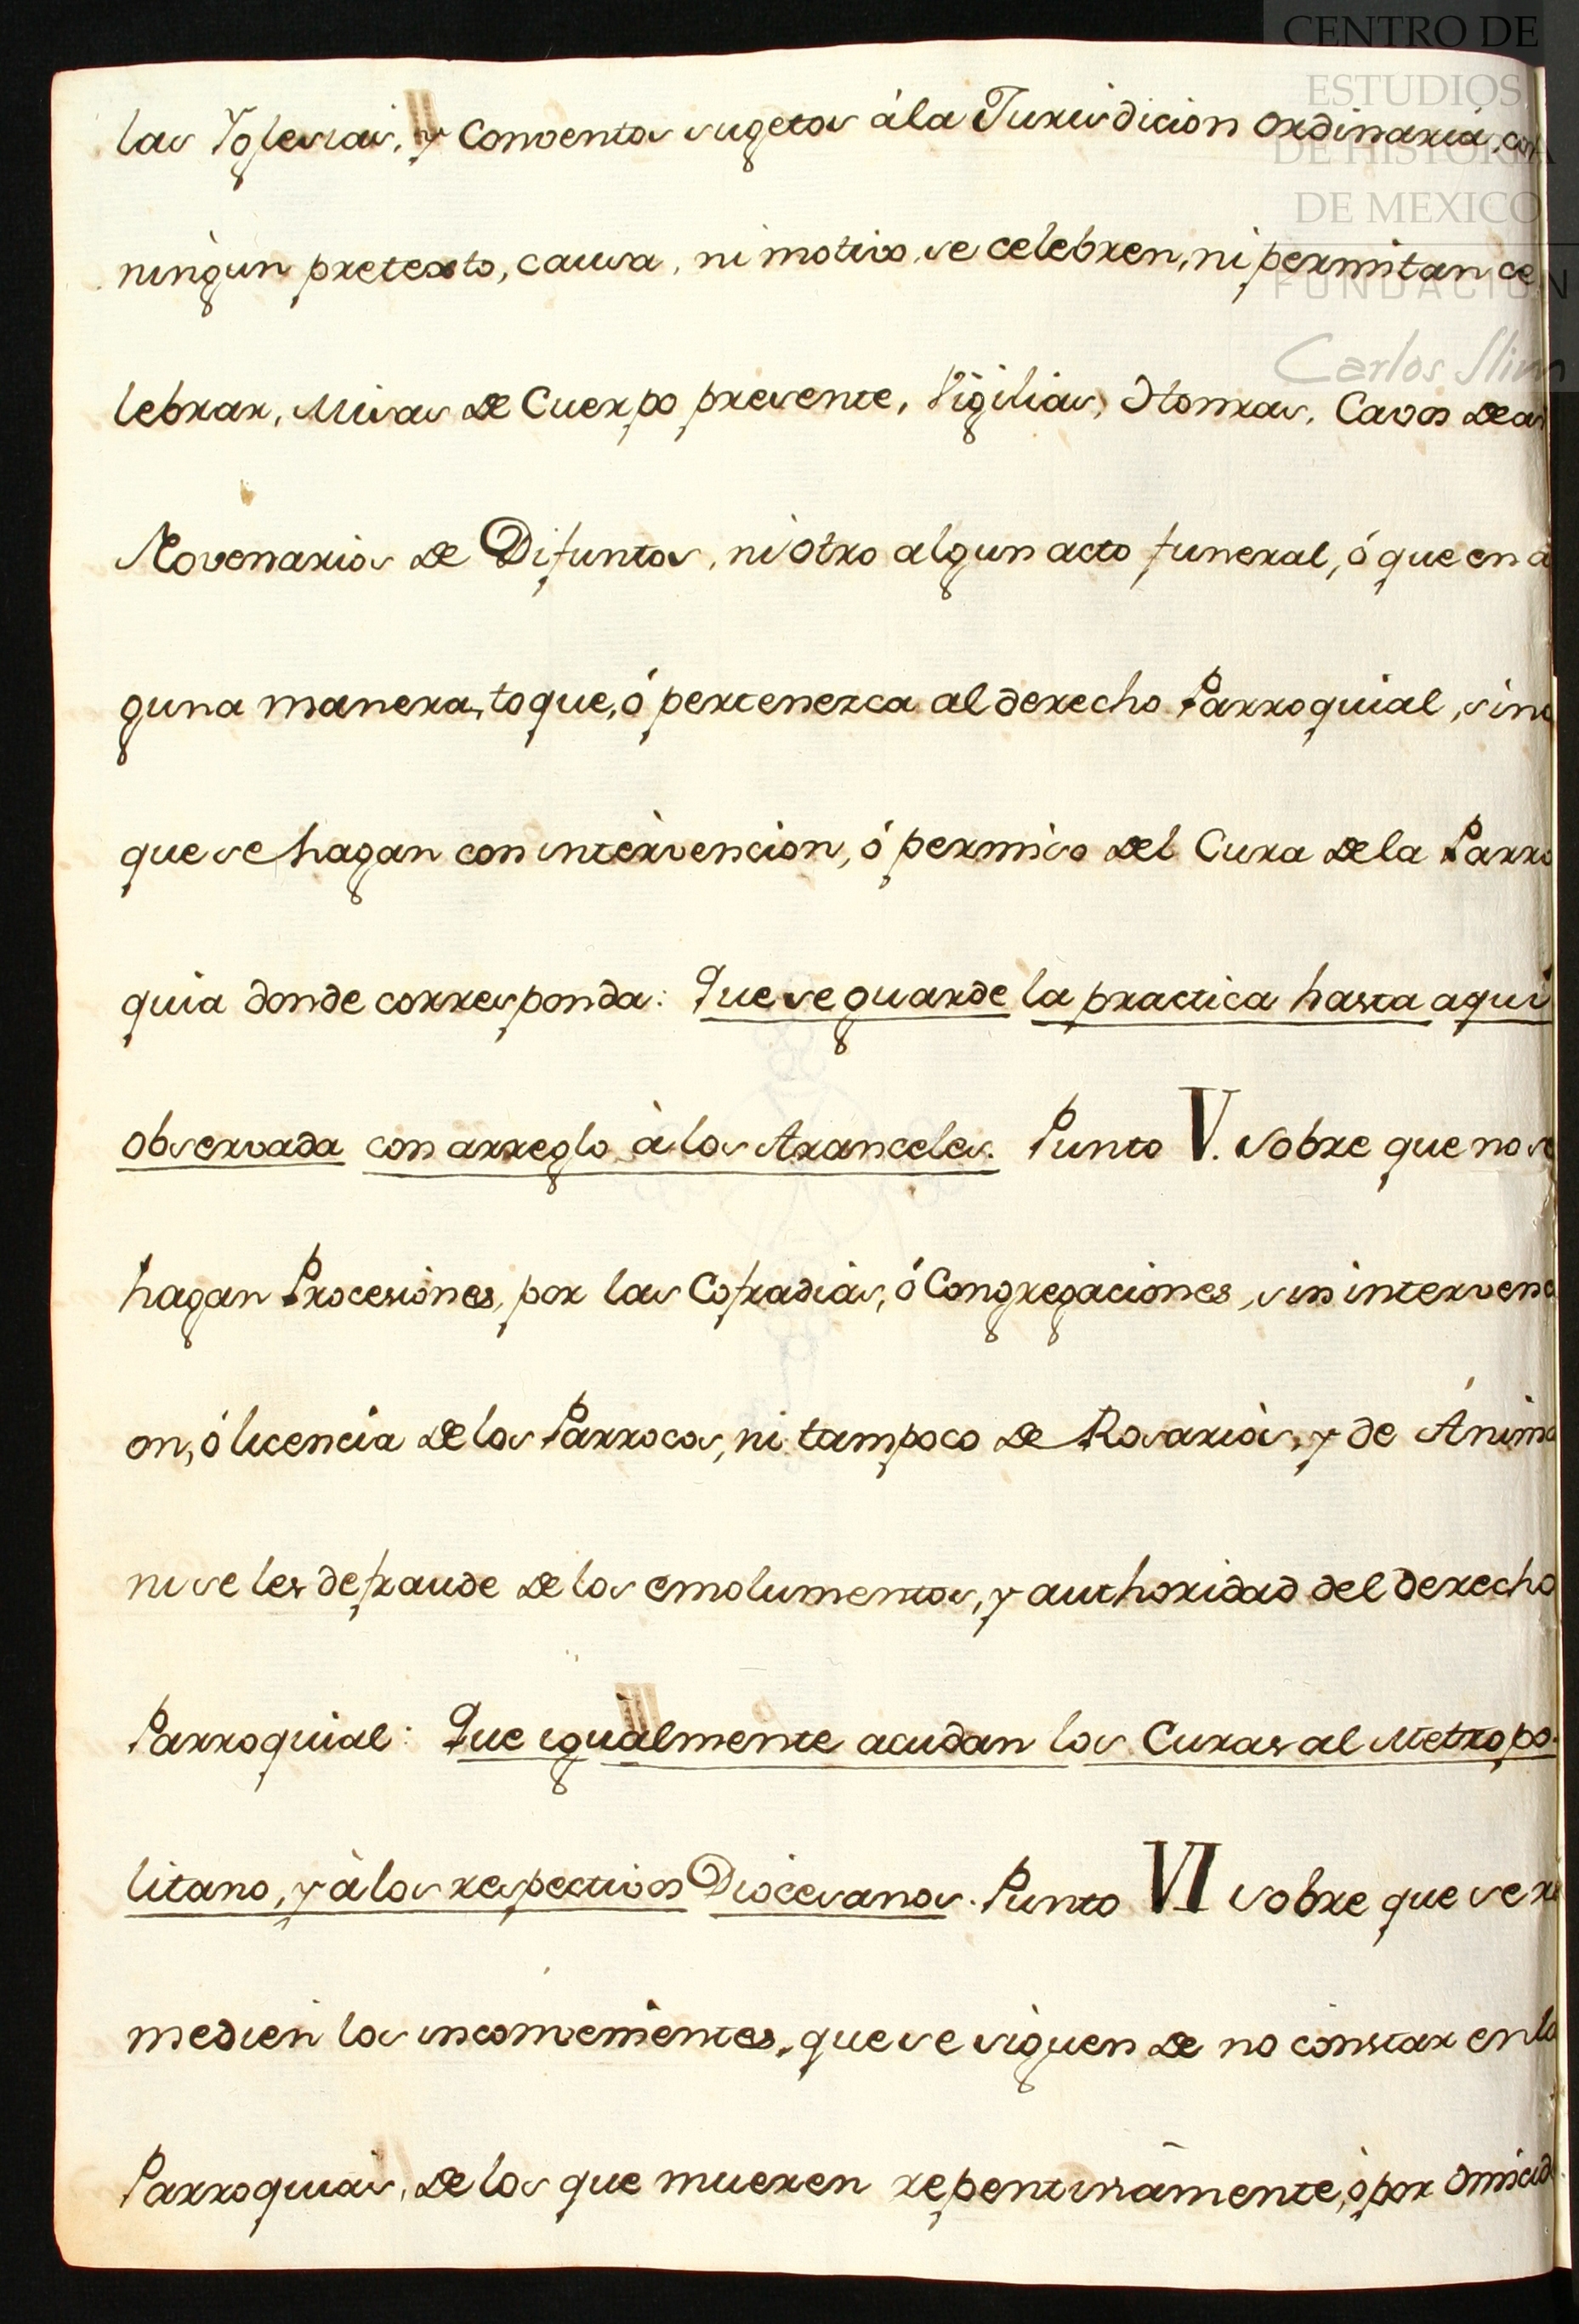 CENTRO DE
ESTUDIOS
DE HISTORIA
DE MEXICO
FUNDACION
Carlos Slim
las Yglesias, y Conventos sugetos àla Jurisdicion Ordinaria, con
ningun pretexto, causa, ni motivo, se celebren, ni permitan ce
lebrar, Misas de Cuerpo presente, Vigilias, Honras, Cavos de a
Novenarios de Difuntos, ni otro algun acto funeral, ó que en a
guna manera, toque, ó pertenezca al derecho Parroquial, sino
que se hagan con intervencion, ó permiso del Cura de la Parro
quia donde corresponda: Que se guarde la practica hasta aqui
observada con arreglo à los Aranceles. Punto V. sobre que no s
hagan Procesiones, por las Cofradias, ó Congregaciones, sin intervenc
on, ó licencia de los Parrocos, ni tampoco de Rosarios, y de Ánima
ni se les defraude de los emolumentos, y authoridad del derecho
Parroquial: Que igualmente acudan los Curas al Metropo-
litano, y à los respectivos Diocesanos. Punto VI sobre que se re
medien los inconvenientes, que se siguen de no constar en la
Parroquias, de los que mueren repentinamente, ò por Omicid